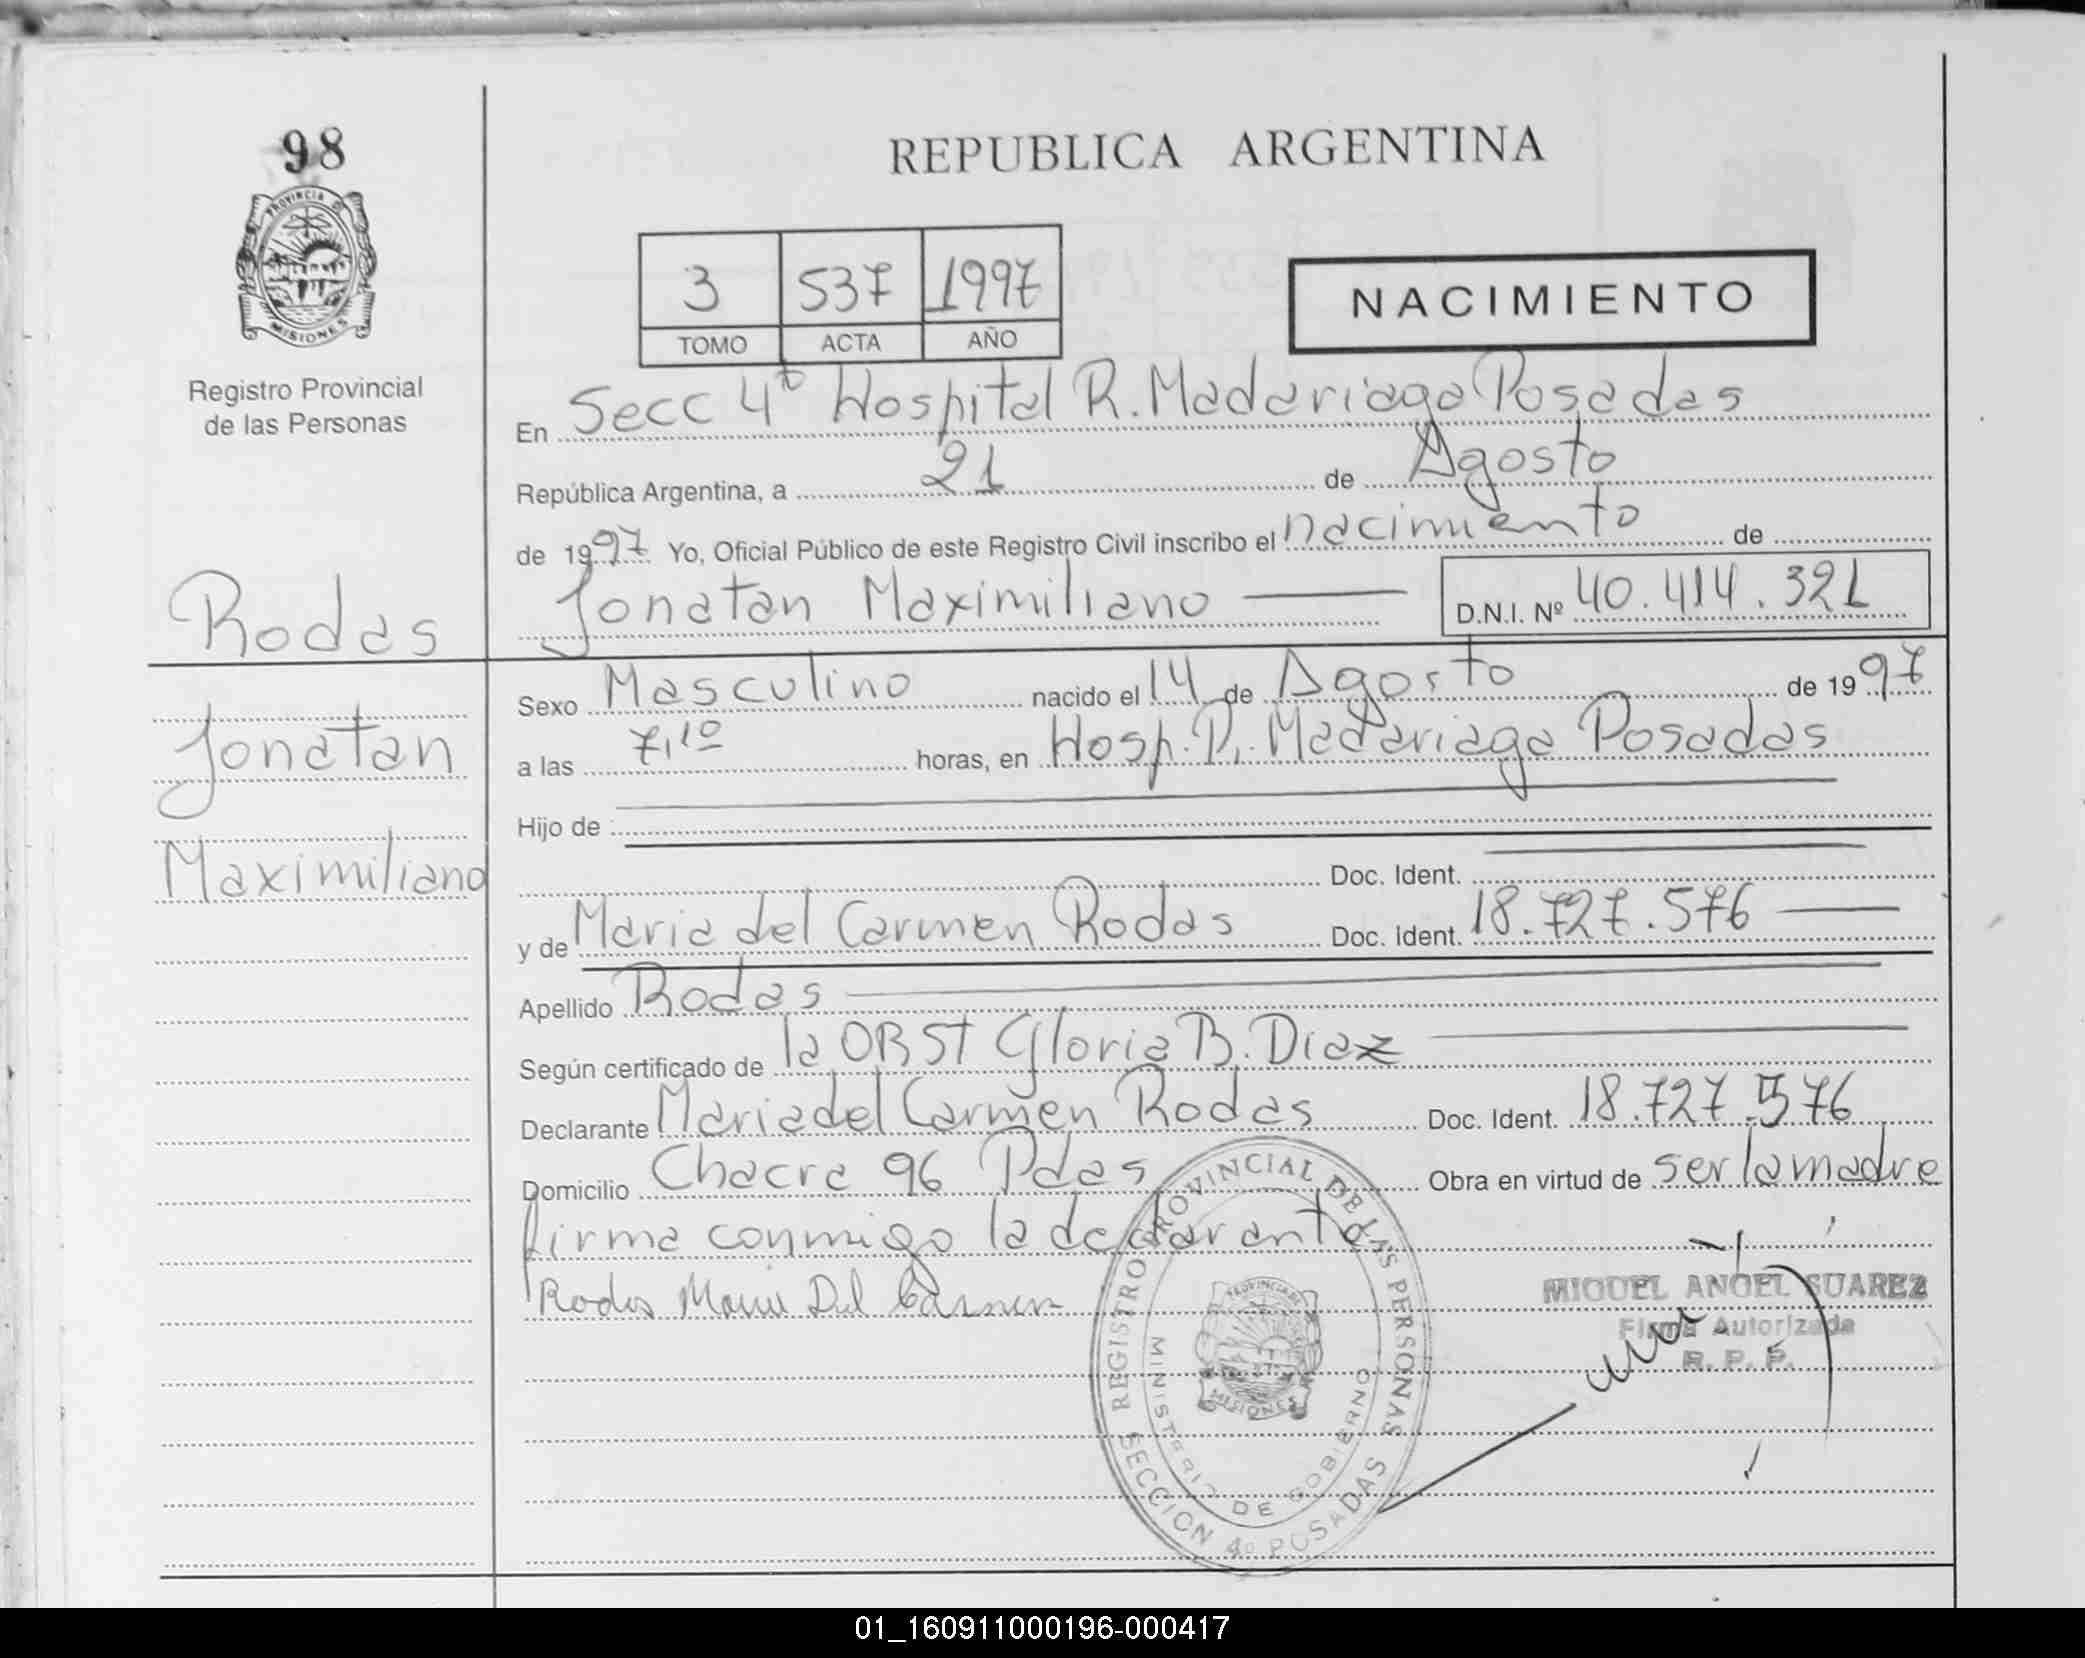 98
PROVINCIA DE
MISIONES
Registro Provincial
de las Personas
REPUBLICA ARGENTINA
3 537 1997
TOMO ACTA AÑO
NACIMIENTO
En Secc 4ª Hospital R. Madariaga Posadas
República Argentina, a 21 de Agosto
de 1997 Yo, Oficial Público de este Registro Civil inscribo el nacimiento de
Rodas
Jonatan Maximiliano D.N.I. Nº 40.414.321
Sexo Masculino nacido el 14 de Agosto de 1997
Jonatan
a las 7,10 horas, en Hosp. R. Madariaga Posadas
Hijo de
Maximiliano
Doc. Ident.
y de Maria del Carmen Rodas Doc. Ident. 18.727.576
Apellido Rodas
Según certificado de la OBST Gloria B. Diaz
Declarante Maria del Carmen Rodas Doc. Ident. 18.727.576
Domicilio Chacra 96 Pdas Obra en virtud de ser la madre
firma conmigo la declarante
Rodas Maria Del Carmen
MIGUEL ANGEL SUAREZ
Firma Autorizada
R. P. P.
REGISTRO PROVINCIAL DE LAS PERSONAS
MINISTERIO DE GOBIERNO
PROVINCIA DE
MISIONES
SECCION 4º POSADAS
01_160911000196-000417